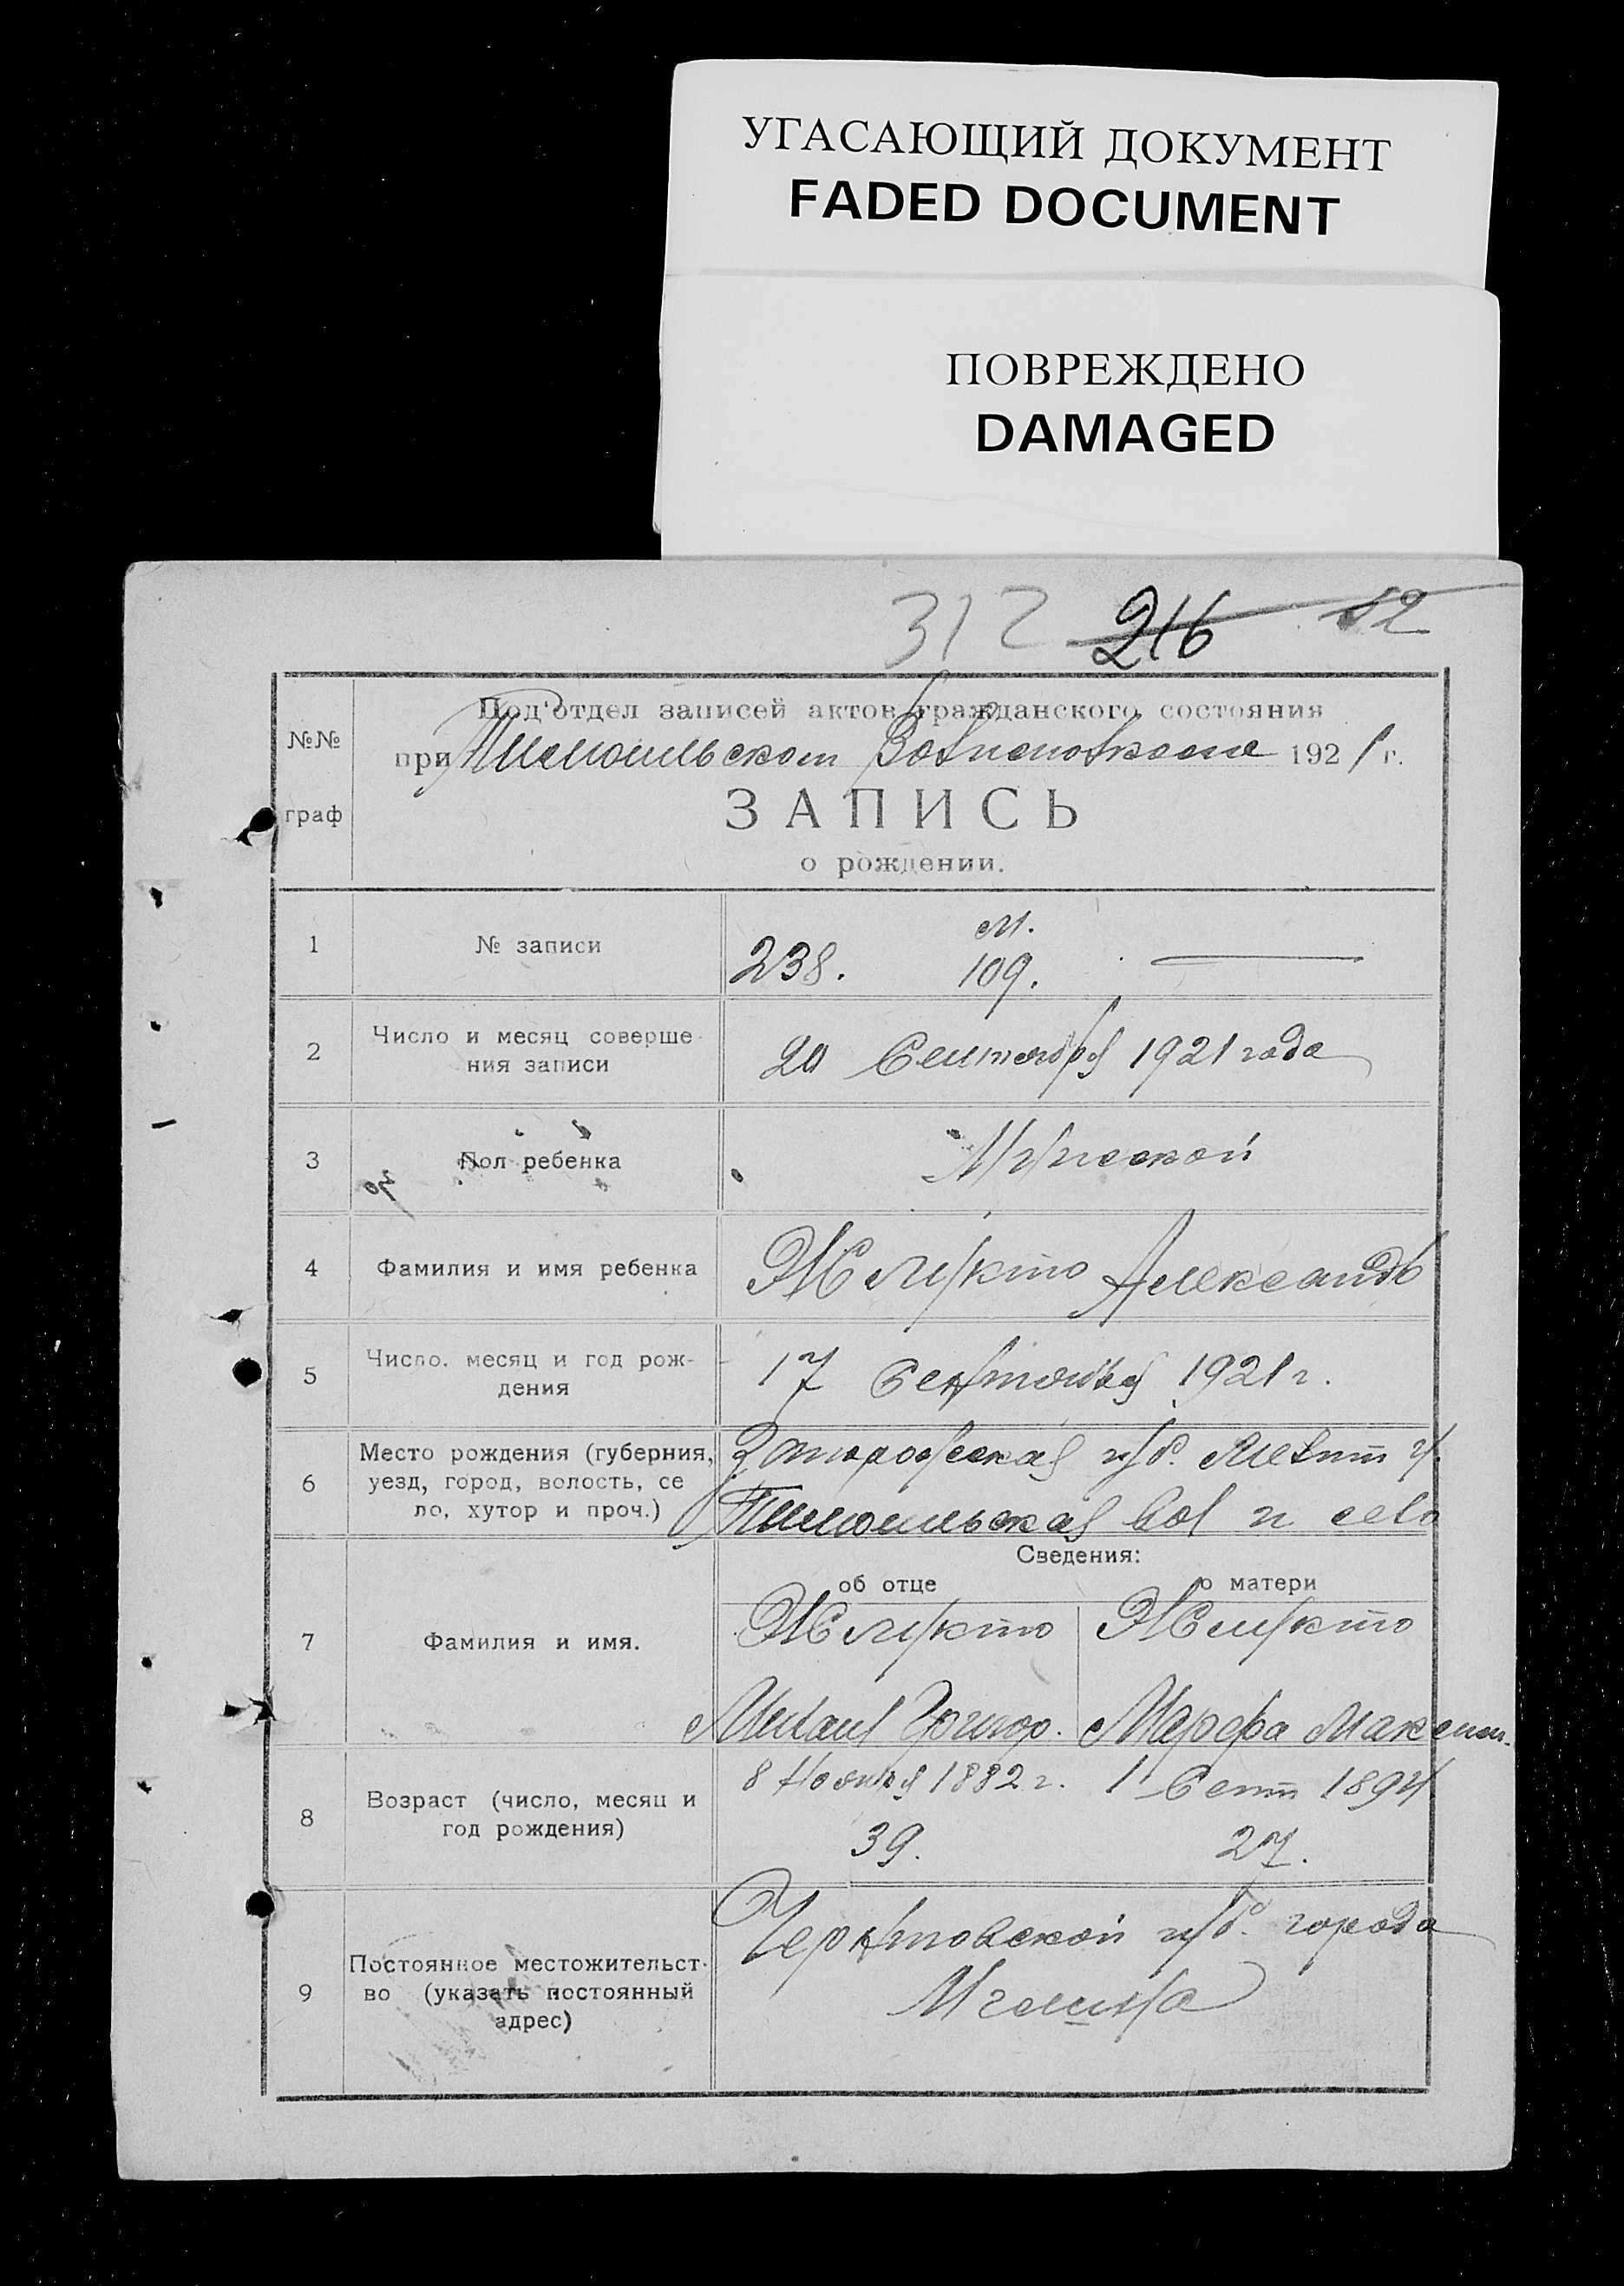 УГАСАЮЩИЙ ДОКУМЕНТ
FADED DOCUMENT
ПОВРЕЖДЕНО
DAMAGED
312 216 52
№№ граф
Под'отдел записей актов гражданского состояния
при Волисполкоме 1921 г.
ЗАПИСЬ
о рождении.
1 № записи 238. М. 109.
2 Число и месяц соверше-
ния записи 20 Сентября 1921 года
3 Пол ребенка Мужской
4 Фамилия и имя ребенка Александр
5 Число, месяц и год рож-
дения 17 Сентября 1921 г.
6 Место рождения (губерния,
уезд, город, волость, се
ло, хутор и проч.) губ. Мелит у.
вол и село
Сведения:
об отце о матери
7 Фамилия и имя.
Михаил Григор. Марфа Максим.
8 Возраст (число, месяц и
год рождения) 8 Ноября 1882 г. 1 Сент 1894
39. 27.
9 Постоянное местожительст-
во (указать постоянный
адрес) губ. города